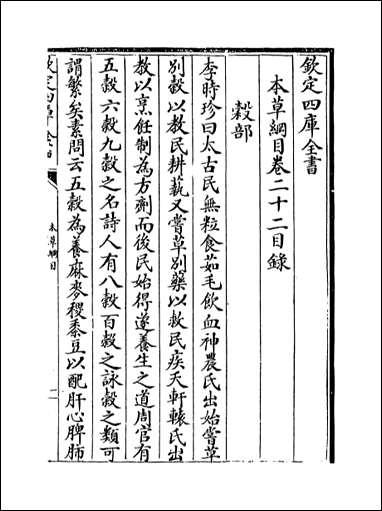 欽定四庫全書
本草綱目卷二十二目錄
穀部
李時珍曰太古民無粒食茹毛飲血神農氏出始嘗草
別穀以教民耕蓺又嘗草別藥以救民疾夭軒轅氏出
教以烹飪制為方劑而後民始得遂養生之道周官有
五穀六穀九穀之名詩人有八穀百穀之詠穀之類可
謂繁矣素問云五穀為養麻麥稷黍豆以配肝心脾肺
本草綱目
一